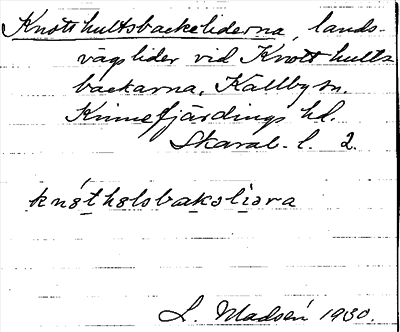 Knotthultsbackeliderna, lands-
vägslider vid Knotthults
backarna, Källby sn.
Kinnefjärdings hd.
Skarab. l. 2.
L. Madsén 1930.